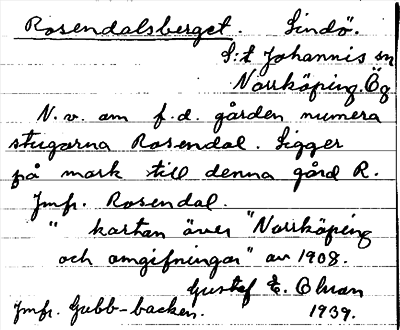 Rosendalsberget. Lindö.
S:t Johannis sn
Norrköping. Ög
N.v. om f.d. gården numera
stugorna Rosendal. Ligger
på mark till denna gård R.
Jmfr. Rosendal.
" kartan över "Norrköping
och omgifningar" av 1908.
Gustaf E. Olson
Jmfr. Gubb-backen. 1939.